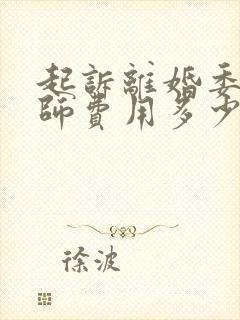 起訴離婚委
師費用多少
徐波